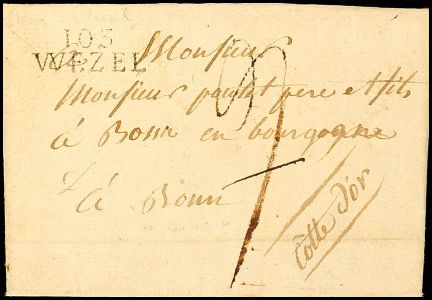 103
WEZEL
Monsieur
Monsieur pautet pere et fils
à Bonn en bourgogne
à Bonn
Côtte d'or